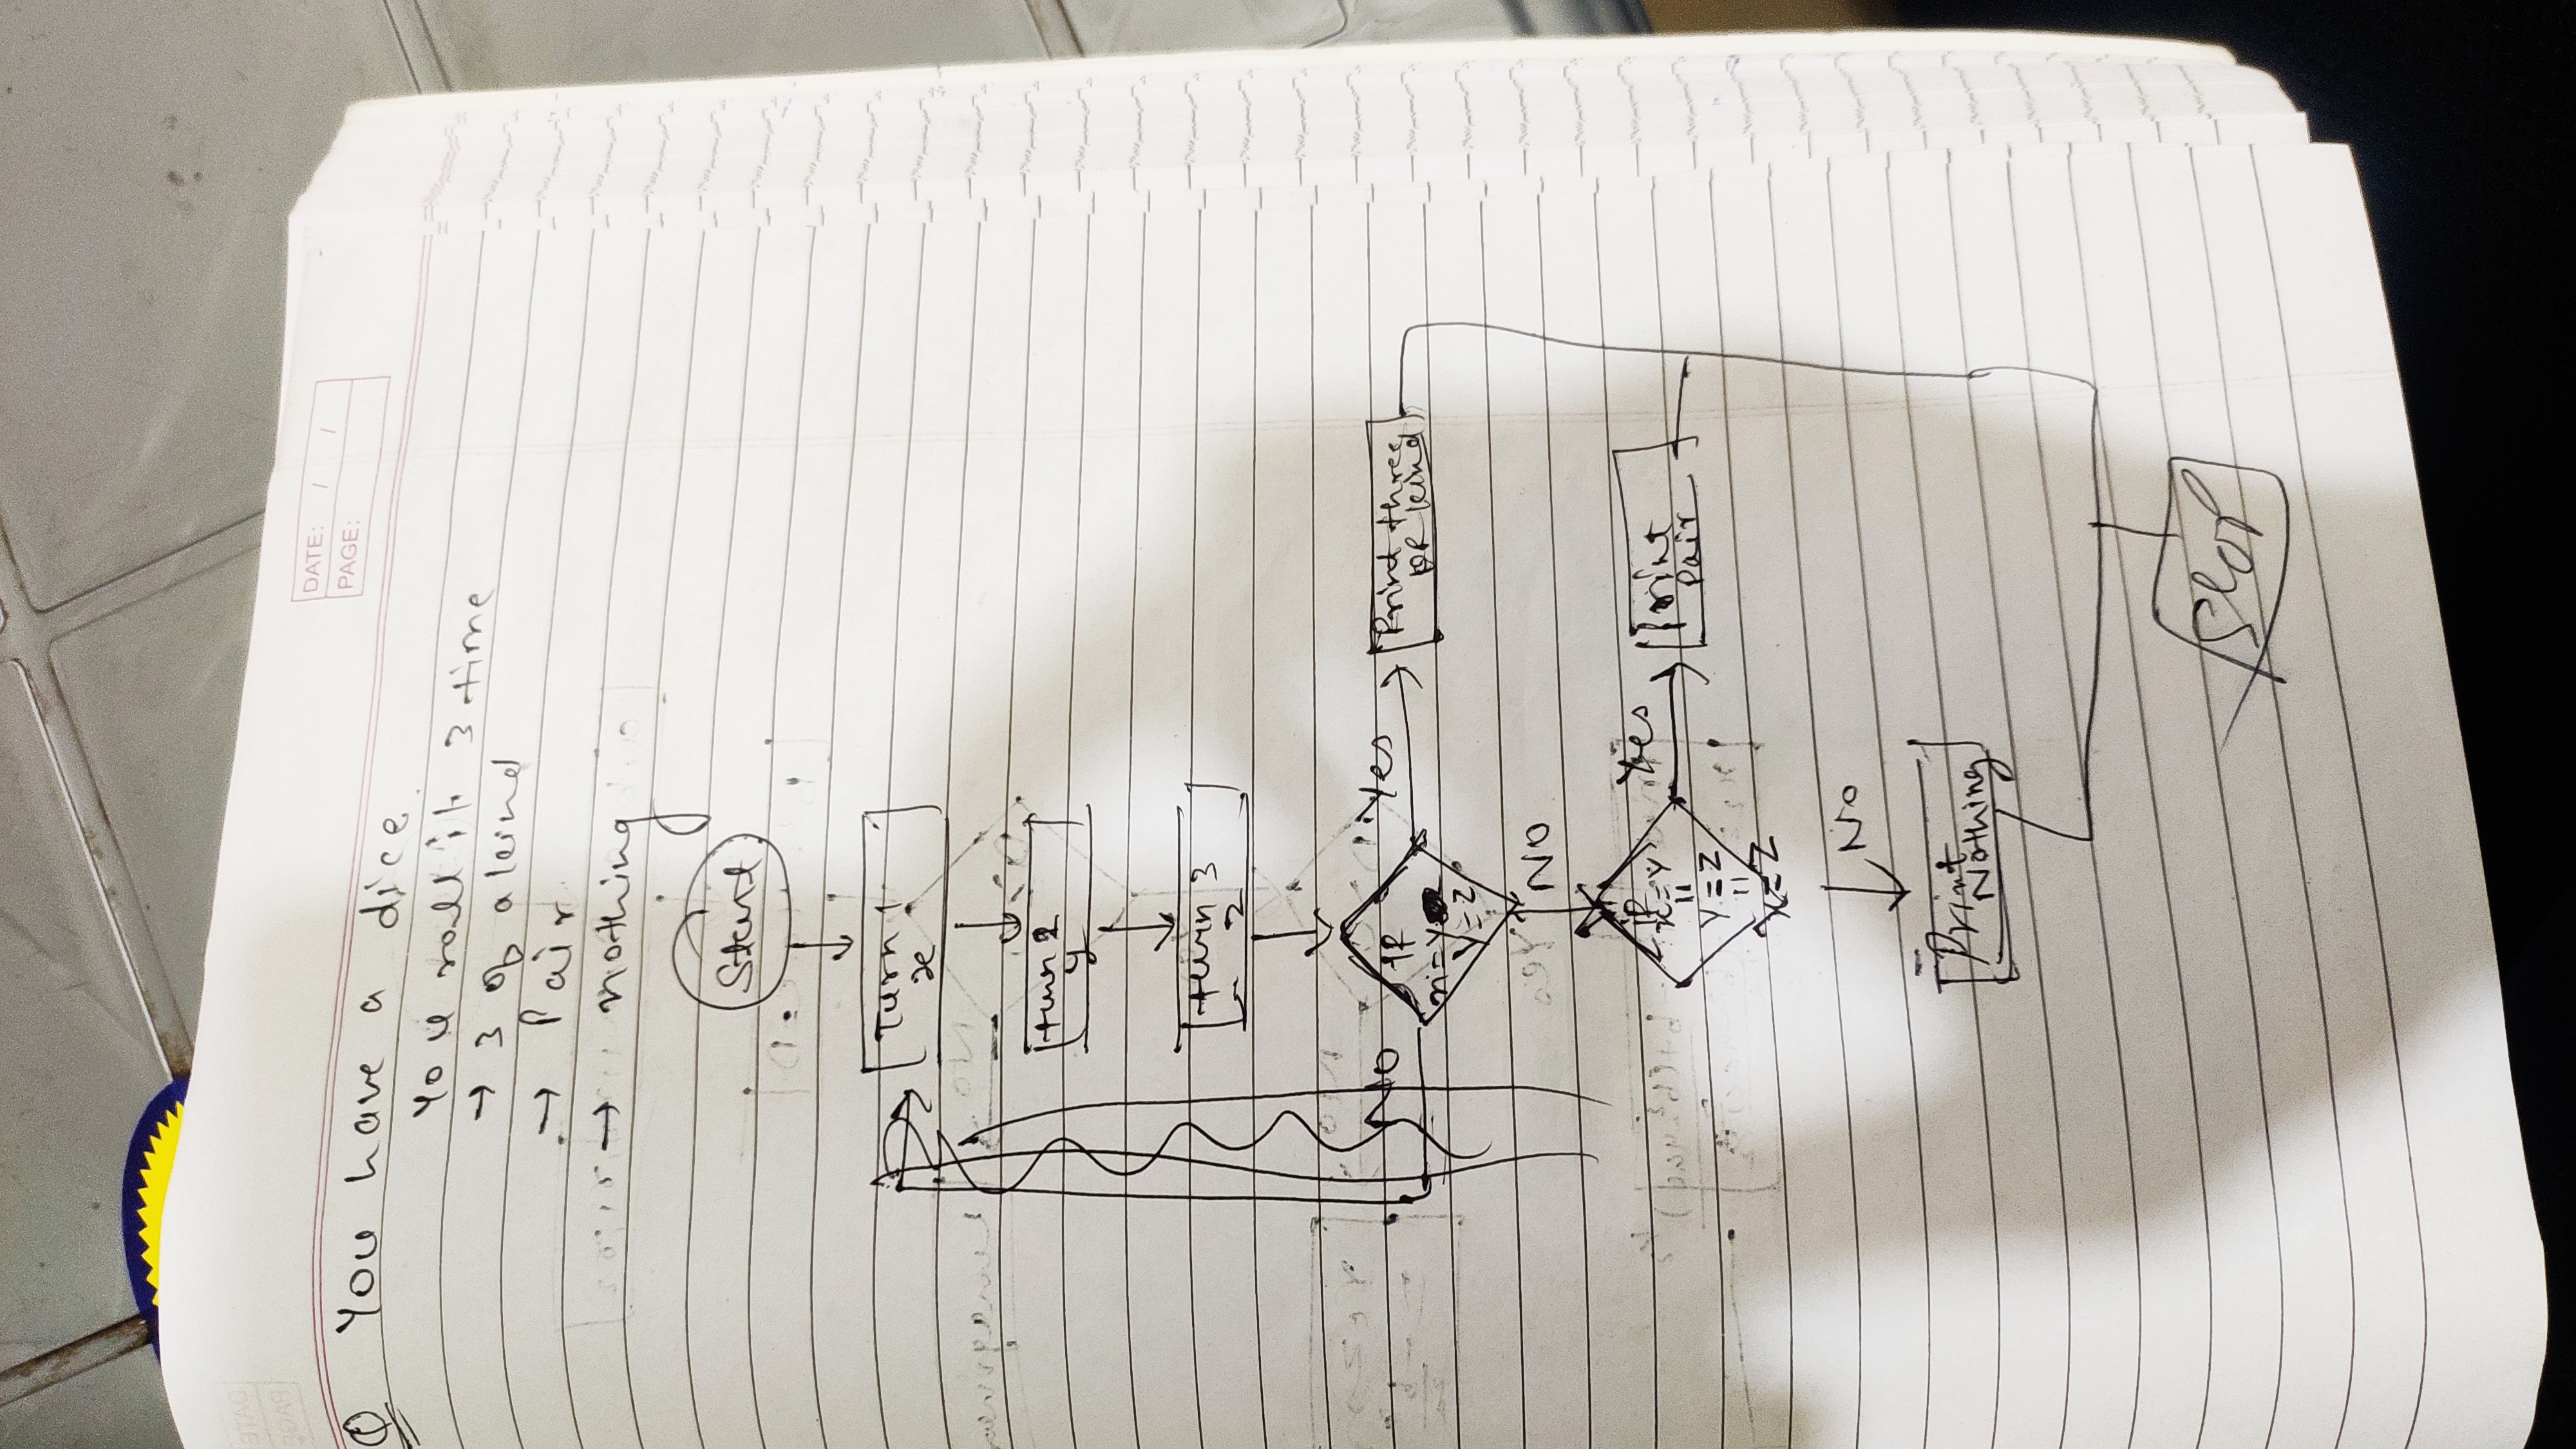 DATE: / /
PAGE:
Q You have a dice.
You roll it 3 time
→ 3 of a kind
→ Pair
→ nothing
Start
Turn 1
x
turn 2
y
turn 3
z
No
if
x=y
y=z
Yes
Print three
of kind
NO
if
x=y
||
y=z
||
x=z
Yes
Print
Pair
No
Print
Nothing
Stop